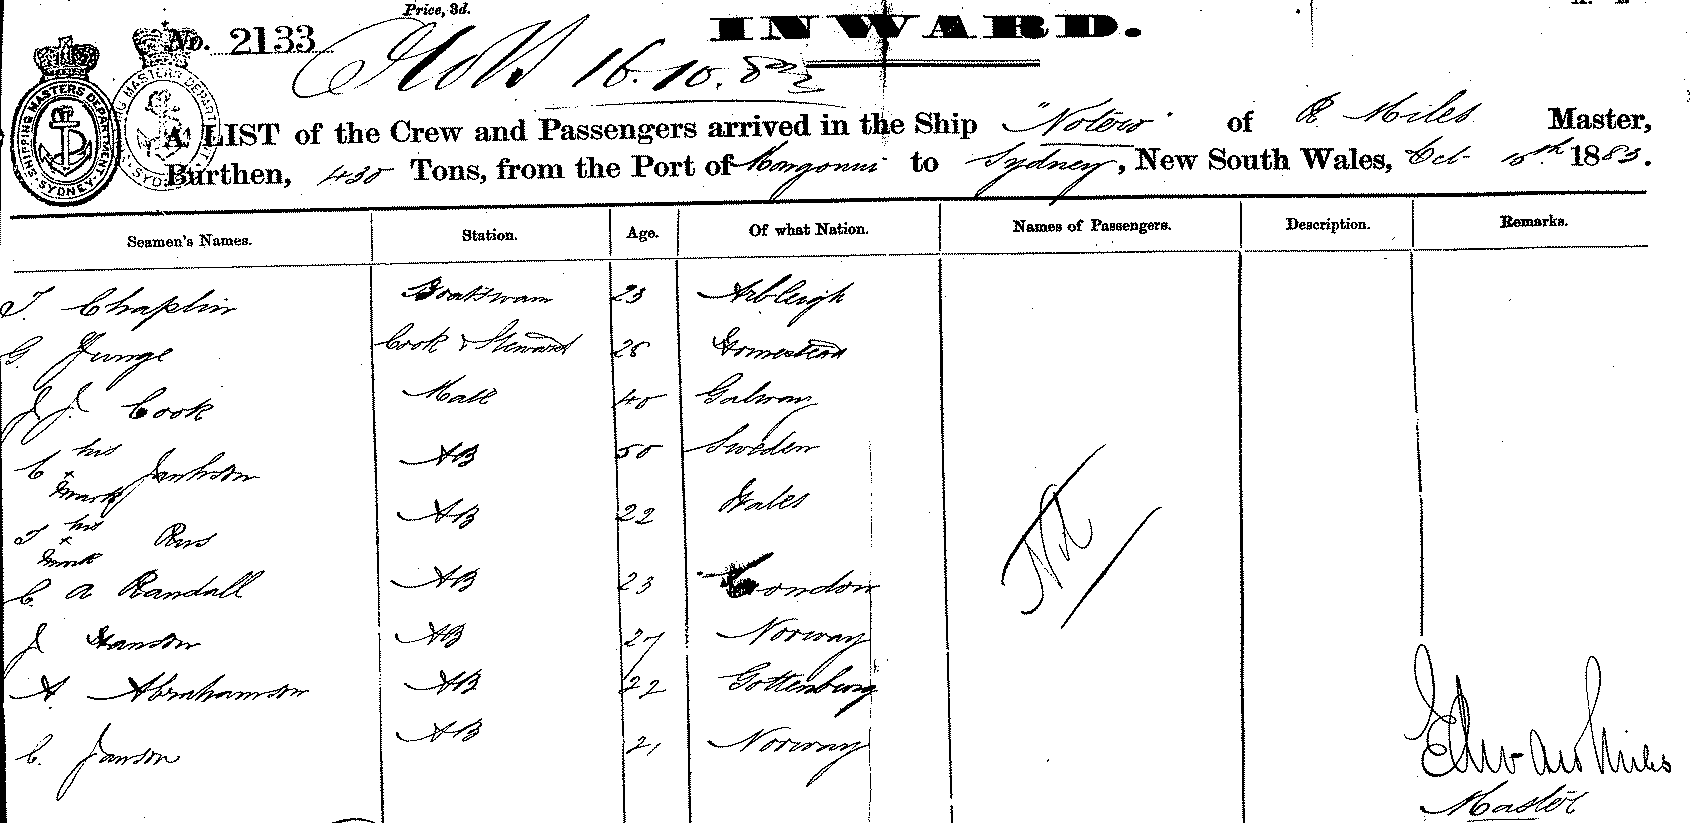 Price, 3d.
INWARD.
No. 2133
16.10.83
SHIPPING MASTERS DEPARTMENT SYDNEY
A LIST of the Crew and Passengers arrived in the Ship "Notero" of R Miles Master,
Burthen, 430 Tons, from the Port of Mangonui to Sydney, New South Wales, Oct 15th 1883.
Seamen's Names. Station. Age. Of what Nation. Names of Passengers. Description. Remarks.
T. Chaplin Boatswain 23 Arbleigh
G. Junge Cook & Steward 28 Homestead
J J. Cook Mate 40 Galway
C his x mark Jankson AB 50 Sweden
T his x mark Rees AB 22 Wales
C. A Randall AB 23 London
J Hanson AB 27 Norway
A. Abrahamson AB 22 Gottenburg
C. Janson AB 21 Norway
Nil
Edward Miles
Master